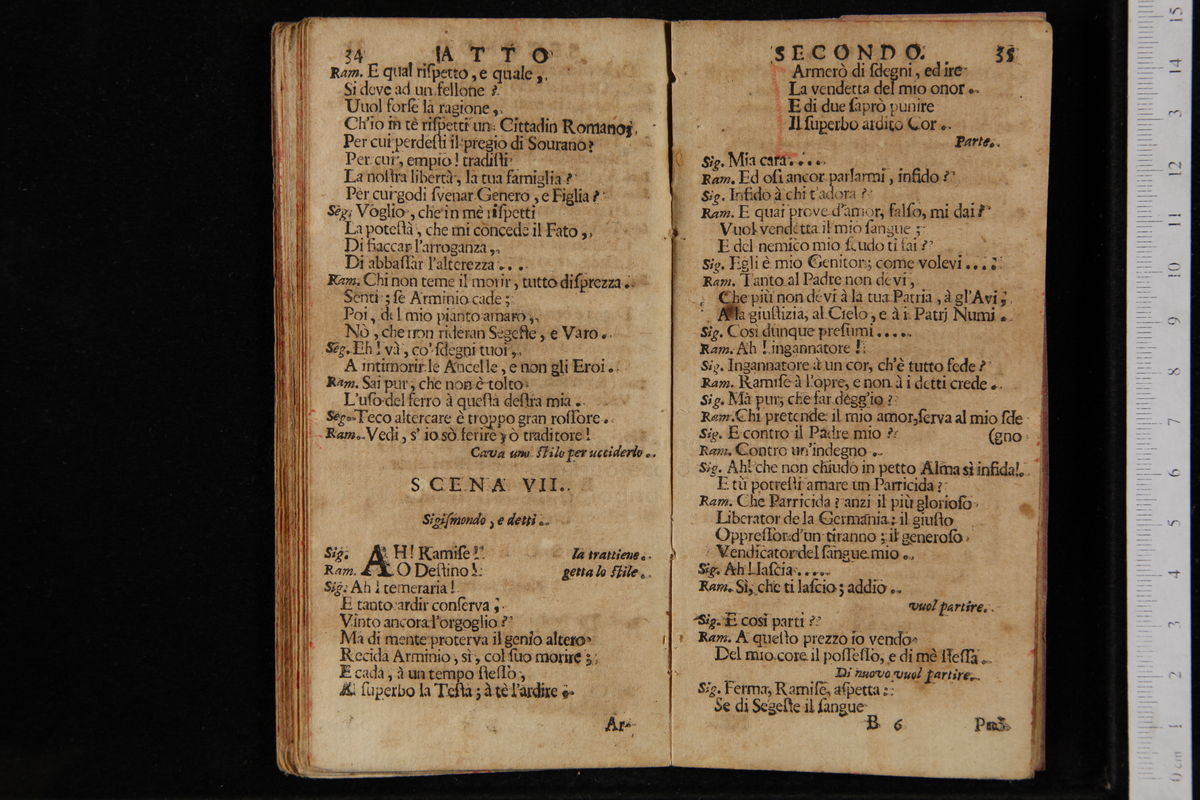 34 ATTO
Ram. E qual riſpetto, e quale,
Si deve ad un fellone?
Vuol forſe la ragione,
Ch'io in tè riſpetti un Cittadin Romano,
Per cui perdeſti il pregio di Sourano?
Per cui, empio! tradiſti
La noſtra libertà, la tua famiglia?
Per cui godi ſvenar Genero, e Figlia?
Seg. Voglio, che in mè riſpetti
La poteſtà, che mi concede il Fato,
Di fiaccar l'arroganza,
Di abbaſſar l'alterezza...
Ram. Chi non teme il morir, tutto diſprezza.
Senti; ſe Arminio cade;
Poi, del mio pianto amaro,
Nò, che non rideran Segeſte, e Varo.
Seg. Eh! và, co' ſdegni tuoi,
A intimorir le Ancelle, e non gli Eroi.
Ram. Sai pur, che non è tolto
L'uſo del ferro à queſta deſtra mia.
Seg. Teco altercare è troppo gran roſſore.
Ram. Vedi, s'io sò ferire, ò traditore!
Cava uno ſtilo per ucciderlo.
SCENA VII.
Sigiſmondo, e detti.
Sig. AH! Ramiſe! la trattiene.
Ram. AO Deſtino! getta lo ſtile.
Sig. Ah! temeraria!
E tanto ardir conſerva,
Vinto ancora l'orgoglio?
Ma di mente proterva il genio altero
Recida Arminio, sì, col ſuo morire;
E cada, à un tempo ſteſſo,
Al ſuperbo la Teſta; à tè l'ardire.
Ar-
SECONDO. 35
Armerò di ſdegni, ed ire
La vendetta del mio onor.
E di due ſaprò punire
Il ſuperbo ardito Cor.
Parte.
Sig. Mia cara....
Ram. Ed oſi ancor parlarmi, infido?
Sig. Infido à chi t'adora?
Ram. E quai prove d'amor, falſo, mi dai?
Vuol vendetta il mio ſangue;
E del nemico mio ſcudo ti fai?
Sig. Egli è mio Genitor; come volevi....
Ram. Tanto al Padre non devi,
Che più non devi à la tua Patria, à gl'Avi;
A la giuſtizia, al Cielo, e à i Patrj Numi.
Sig. Così dunque preſumi....
Ram. Ah! ingannatore!
Sig. Ingannatore à un cor, ch'è tutto fede?
Ram. Ramiſe à l'opre, e non à i detti crede.
Sig. Mà pur, che far degg'io?
Ram. Chi pretende il mio amor, ſerva al mio ſde
Sig. E contro il Padre mio? (gno
Ram. Contro un'indegno.
Sig. Ah! che non chiudo in petto Alma sì infida!
E tù potreſti amare un Parricida?
Ram. Che Parricida? anzi il più glorioſo
Liberator de la Germania; il giuſto
Oppreſſor d'un tiranno; il generoſo
Vendicator del ſangue mio.
Sig. Ah! laſcia....
Ram. Sì, che ti laſcio; addio.
vuol partire.
Sig. E così parti?
Ram. A queſto prezzo io vendo
Del mio core il poſſeſſo, e di mè ſteſſa.
Di nuovo vuol partire.
Sig. Ferma, Ramiſe, aſpetta:
Se di Segeſte il ſangue
B 6
0 cm 1 2 3 4 5 6 7 8 9 10 11 12 13 14 15